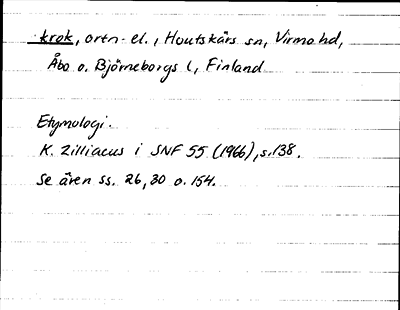 krok, ortn.-el., Houtskärs sn, Virmo hd,
Åbo o. Björneborgs l, Finland
Etymologi.
K. Zilliacus i SNF 55 (1966), s.138.
Se även ss. 26, 30 o. 154.